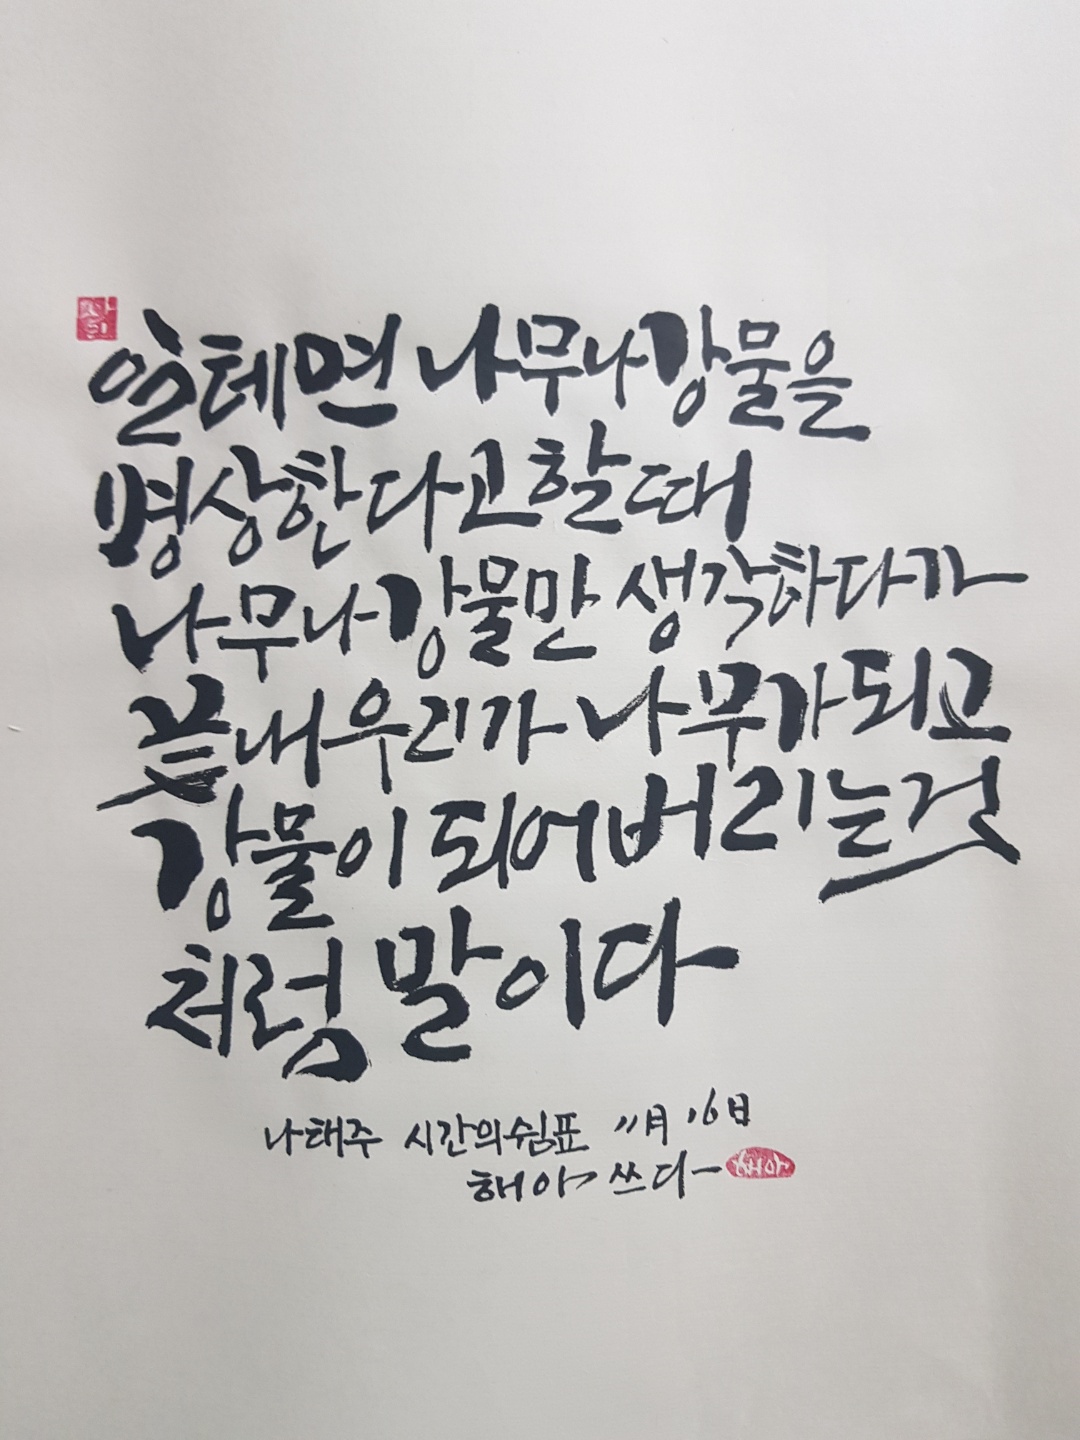 일테면 나무나 강물을
명상한다고 할 때
나무나 강물만 생각하다가
끝내 우리가 나무가 되고
강물이 되어버리는 것
처럼 말이다
나태주 시간의 쉼표 11月 16日
해아 쓰다
해아